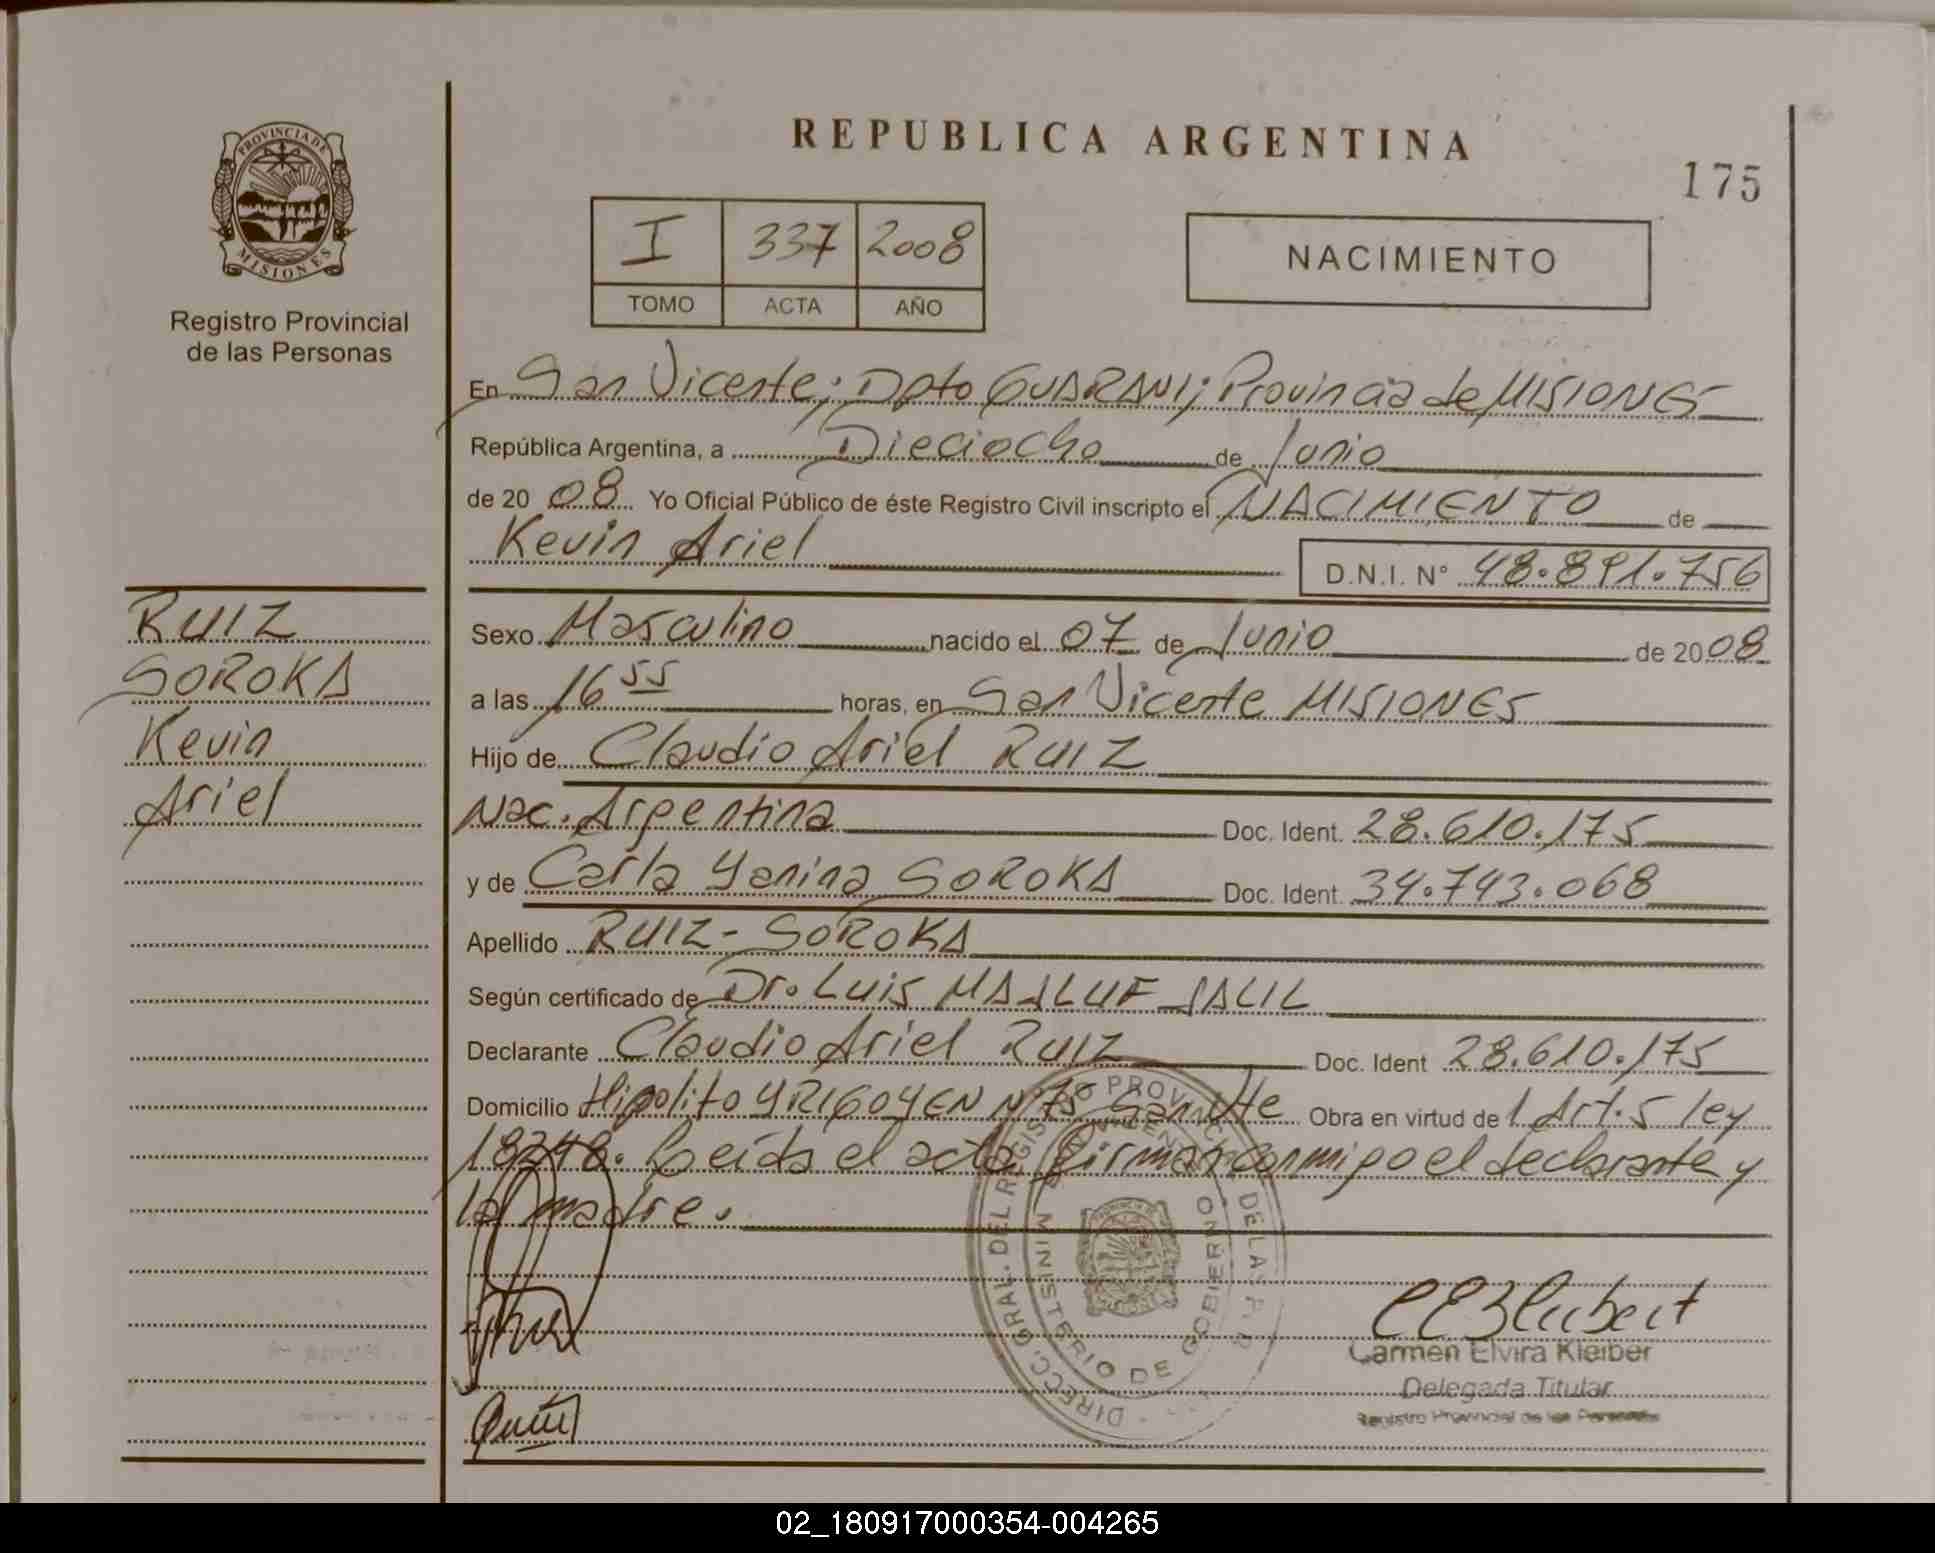 PROVINCIA DE
MISIONES
Registro Provincial
de las Personas
RUIZ
SOROKA
Kevin
Ariel
REPUBLICA ARGENTINA
175
I 337 2008
TOMO ACTA AÑO
NACIMIENTO
En San Vicente; Dpto GUARANI; Provincia de MISIONES
República Argentina, a Dieciocho de Junio
de 2008 Yo Oficial Público de éste Registro Civil inscripto el NACIMIENTO de
Kevin Ariel D.N.I. N° 48.891.756
Sexo Masculino nacido el 07 de Junio de 2008
a las 16 55 horas, en San Vicente MISIONES
Hijo de Claudio Ariel RUIZ
Nac. Argentina Doc. Ident. 28.610.175
y de Carla Yanina SOROKA Doc. Ident. 34.743.068
Apellido RUIZ-SOROKA
Según certificado de Dr. Luis MAJLUF JALIL
Declarante Claudio Ariel RUIZ Doc. Ident 28.610.175
Domicilio Hipolito YRIGOYEN N°75 San Vte Obra en virtud de 1 Art. 5 ley
18248. Leída el acta firman conmigo el declarante y
la madre.
DIRECC. GRAL. DEL REGISTRO PROVINC DE LAS PER
MINISTERIO DE GOBIERNO
Carmen Elvira Kleiber
Delegada Titular
Registro Provincial de las Personas
02_180917000354-004265